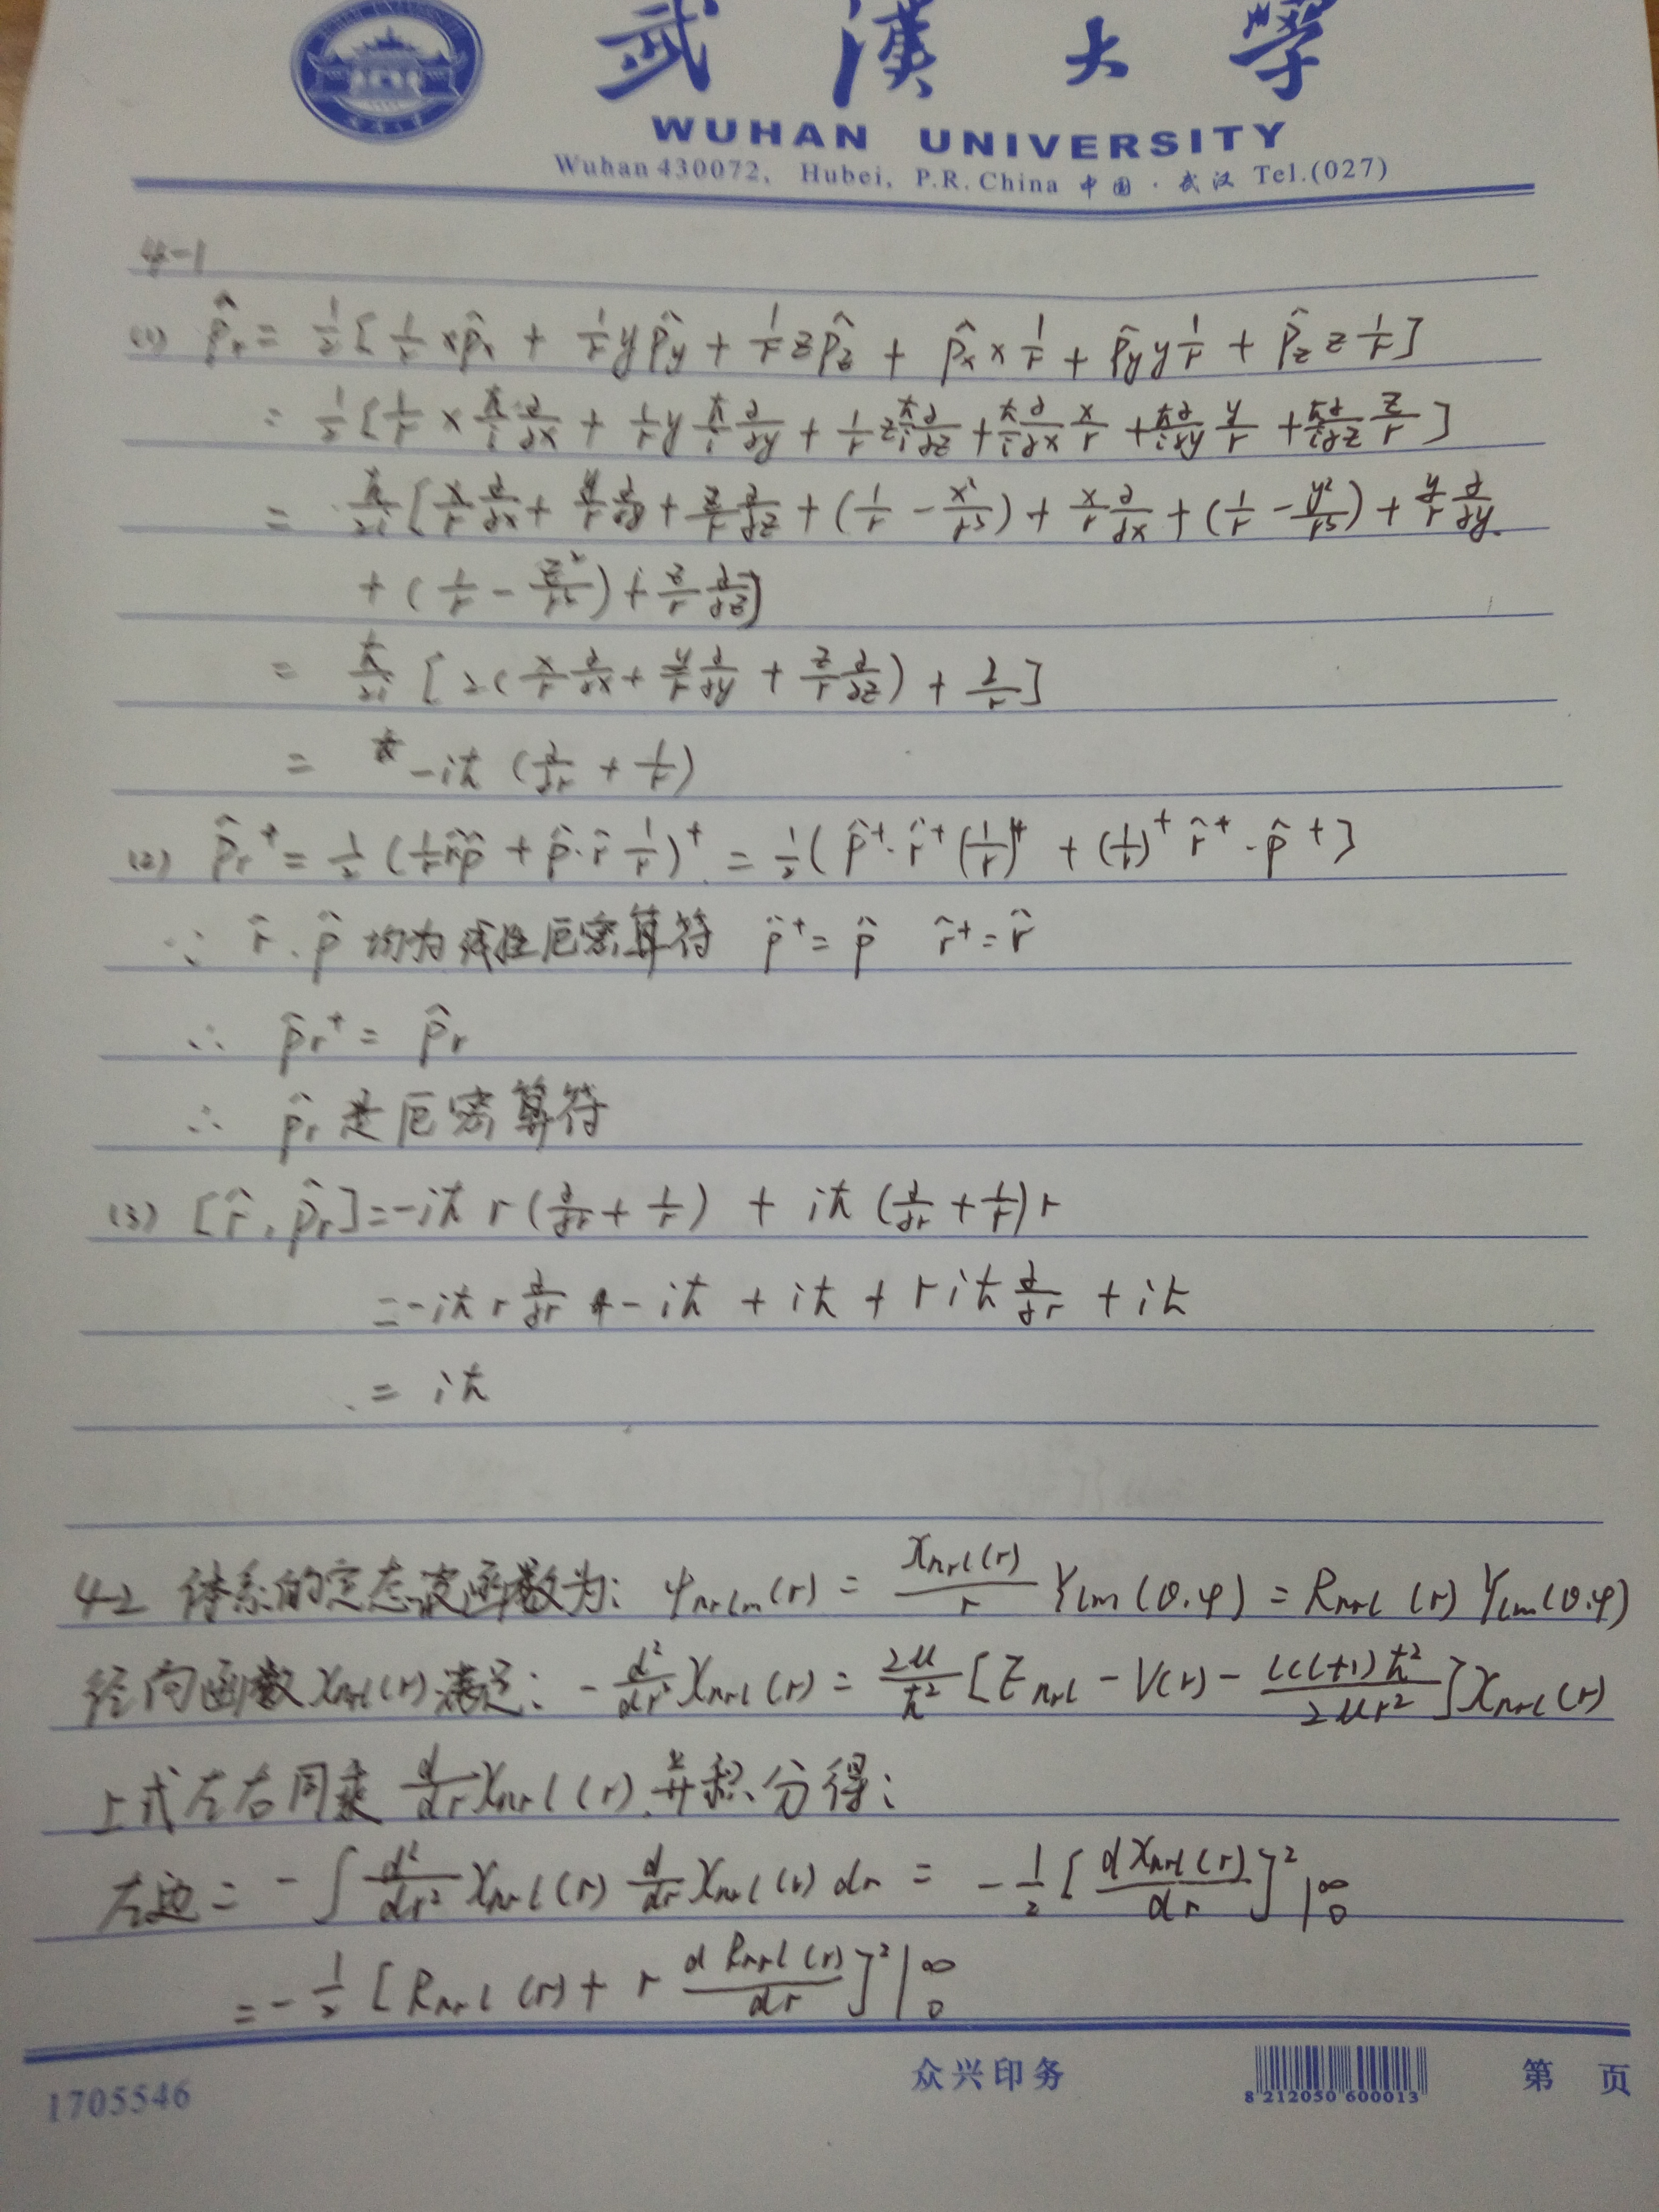 武漢大學
WUHAN UNIVERSITY
Wuhan 430072, Hubei, P.R. China 中国·武汉 Tel.(027)
4-1
(1) p̂r = 1/2 [ 1/r x p̂x + 1/r y p̂y + 1/r z p̂z + p̂x x 1/r + p̂y y 1/r + p̂z z 1/r ]
= 1/2 [ 1/r x ħ/i ∂/∂x + 1/r y ħ/i ∂/∂y + 1/r z ħ/i ∂/∂z + ħ/i ∂/∂x x/r + ħ/i ∂/∂y y/r + ħ/i ∂/∂z z/r ]
= ħ/2i [ x/r ∂/∂x + y/r ∂/∂y + z/r ∂/∂z + (1/r - x²/r³) + x/r ∂/∂x + (1/r - y²/r³) + y/r ∂/∂y
+ (1/r - z²/r³) + z/r ∂/∂z ]
= ħ/2i [ 2( x/r ∂/∂x + y/r ∂/∂y + z/r ∂/∂z ) + 2/r ]
= -iħ ( ∂/∂r + 1/r )
(2) p̂r⁺ = 1/2 ( 1/r r̂·p̂ + p̂·r̂ 1/r )⁺ = 1/2 ( p̂⁺·r̂⁺ (1/r)⁺ + (1/r)⁺ r̂⁺·p̂⁺ )
∵ r̂、p̂ 均为线性厄密算符 p̂⁺ = p̂ r̂⁺ = r̂
∴ p̂r⁺ = p̂r
∴ p̂r 是厄密算符
(3) [r̂, p̂r] = -iħ r ( ∂/∂r + 1/r ) + iħ ( ∂/∂r + 1/r ) r
= -iħ r ∂/∂r - iħ + iħ + r iħ ∂/∂r + iħ
= iħ
4-2 体系的定态波函数为: ψnrlm(r) = χnrl(r)/r Ylm(θ.φ) = Rnrl(r) Ylm(θ.φ)
径向函数 χnrl(r) 满足: - d²/dr² χnrl(r) = 2μ/ħ² [ Enrl - V(r) - l(l+1)ħ²/2μr² ] χnrl(r)
上式左右同乘 d/dr χnrl(r) 并积分得:
左边 = - ∫ d²/dr² χnrl(r) d/dr χnrl(r) dr = - 1/2 [ dχnrl(r)/dr ]² |₀^∞
= - 1/2 [ Rnrl(r) + r dRnrl(r)/dr ]² |₀^∞
1705546
众兴印务
8 212050 600013
第 页